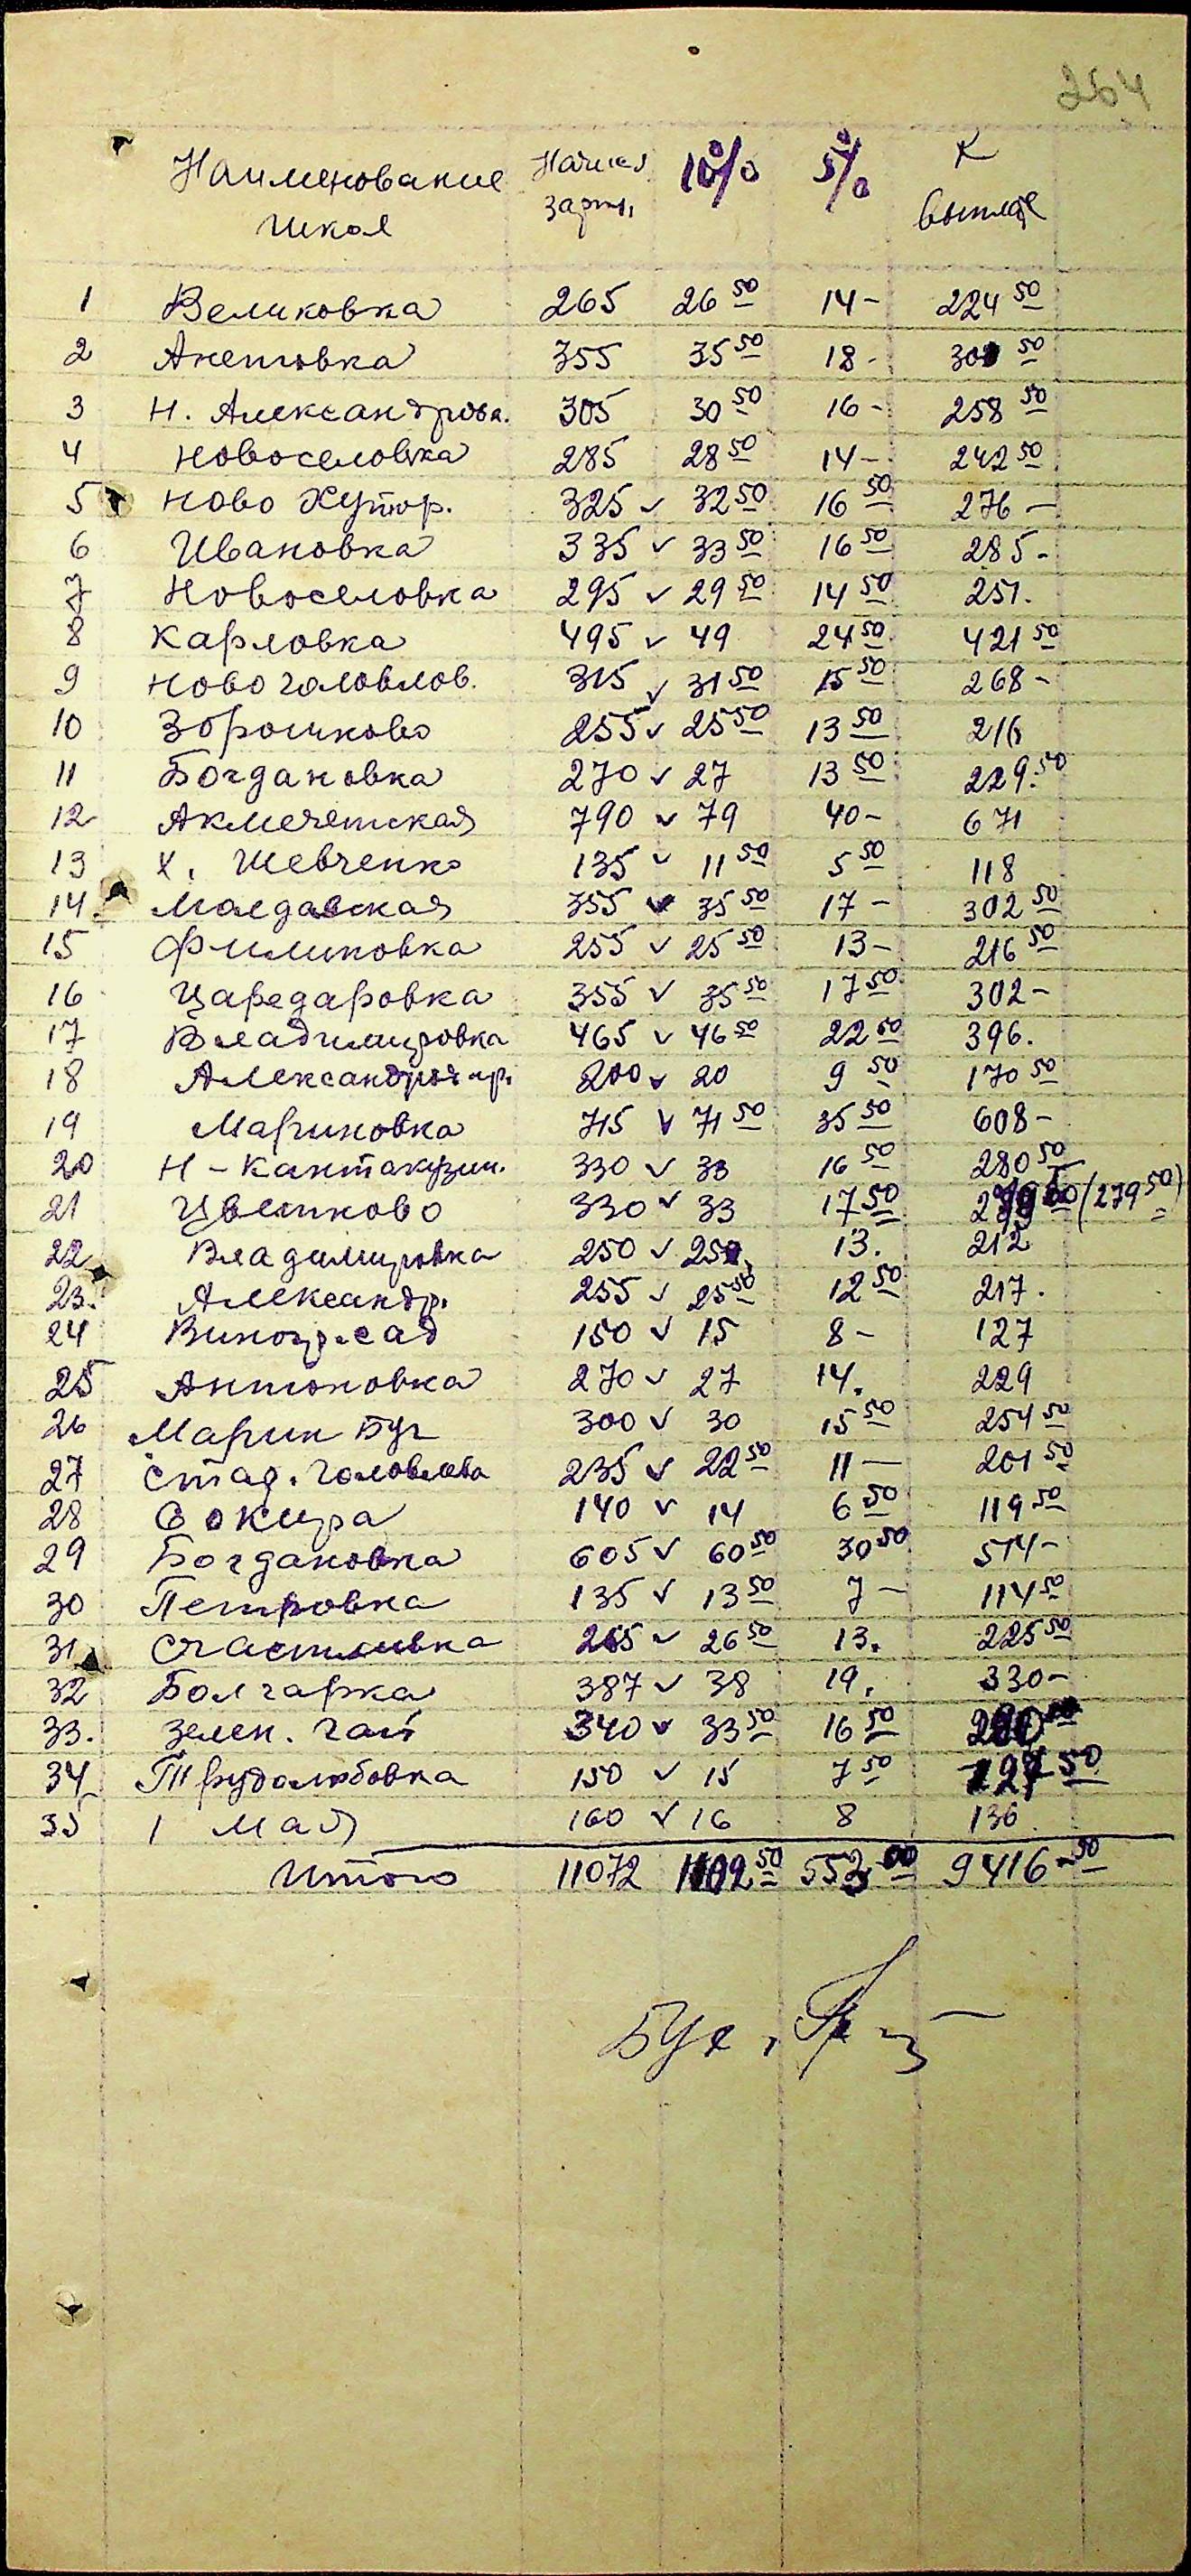 264
Наименование школ Начисл зарпл, 10% 5% К выплате
1 Великовка 265 26 50 14- 224 50
2 Акетовка 355 35 50 18- 301 50
3 Н. Александровк. 305 30 50 16- 258 50
4 Новоселовка 285 28 50 14- 242 50
5 Ново Хутор. 325 v 32 50 16 50 276 -
6 Ивановка 335 v 33 50 16 50 285-
7 Новоселовка 295 v 29 50 14 50 251.
8 Карловка 495 v 49 24 50 421 50
9 Ново головлов. 315 v 31 50 15 50 268-
10 Зброшково 255 v 25 50 13 50 216
11 Богдановка 270 v 27 13 50 229. 50
12 Акмечетская 790 v 79 40- 671
13 Х. Шевченко 135 v 11 50 5 50 118
14. Молдавская 355 v 35 50 17- 302 50
15 Филиновка 255 v 25 50 13- 216 50
16 Царедаровка 355 v 35 50 17 50 302-
17 Владимировка 465 v 46 50 22 50 396.
18 Александродар. 200 v 20 9 50 170 50
19 Мариновка 715 v 71 50 35 50 608-
20 Н-Кантакузин. 330 v 33 16 50 280 50
21 Цветково 330 v 33 17 50 (279 50)
22 Владимировка 250 v 25 13. 212
23. Александр. 255 v 25 50 12 50 217.
24 Виногр. сад 150 v 15 8- 127
25 Антоновка 270 v 27 14. 229
26 Марин Буг 300 v 30 15 50 254 50
27 Стар. Головлева 235 v 22 50 11- 201 50
28 Сокира 140 v 14 6 50 119 50
29 Богдановка 605 v 60 50 30 50 514-
30 Петровка 135 v 13 50 7- 114 50
31 Счастливка 265 v 26 50 13. 225 50
32 Болгарка 387 v 38 19. 330-
33. Зелен. Гай 340 v 33 50 16 50
34 Трудолюбовка 150 v 15 7 50 127 50
35 1 Мая 160 v 16 8 136
Итого 11072 1102 50 553 00 9416-50
Бух.